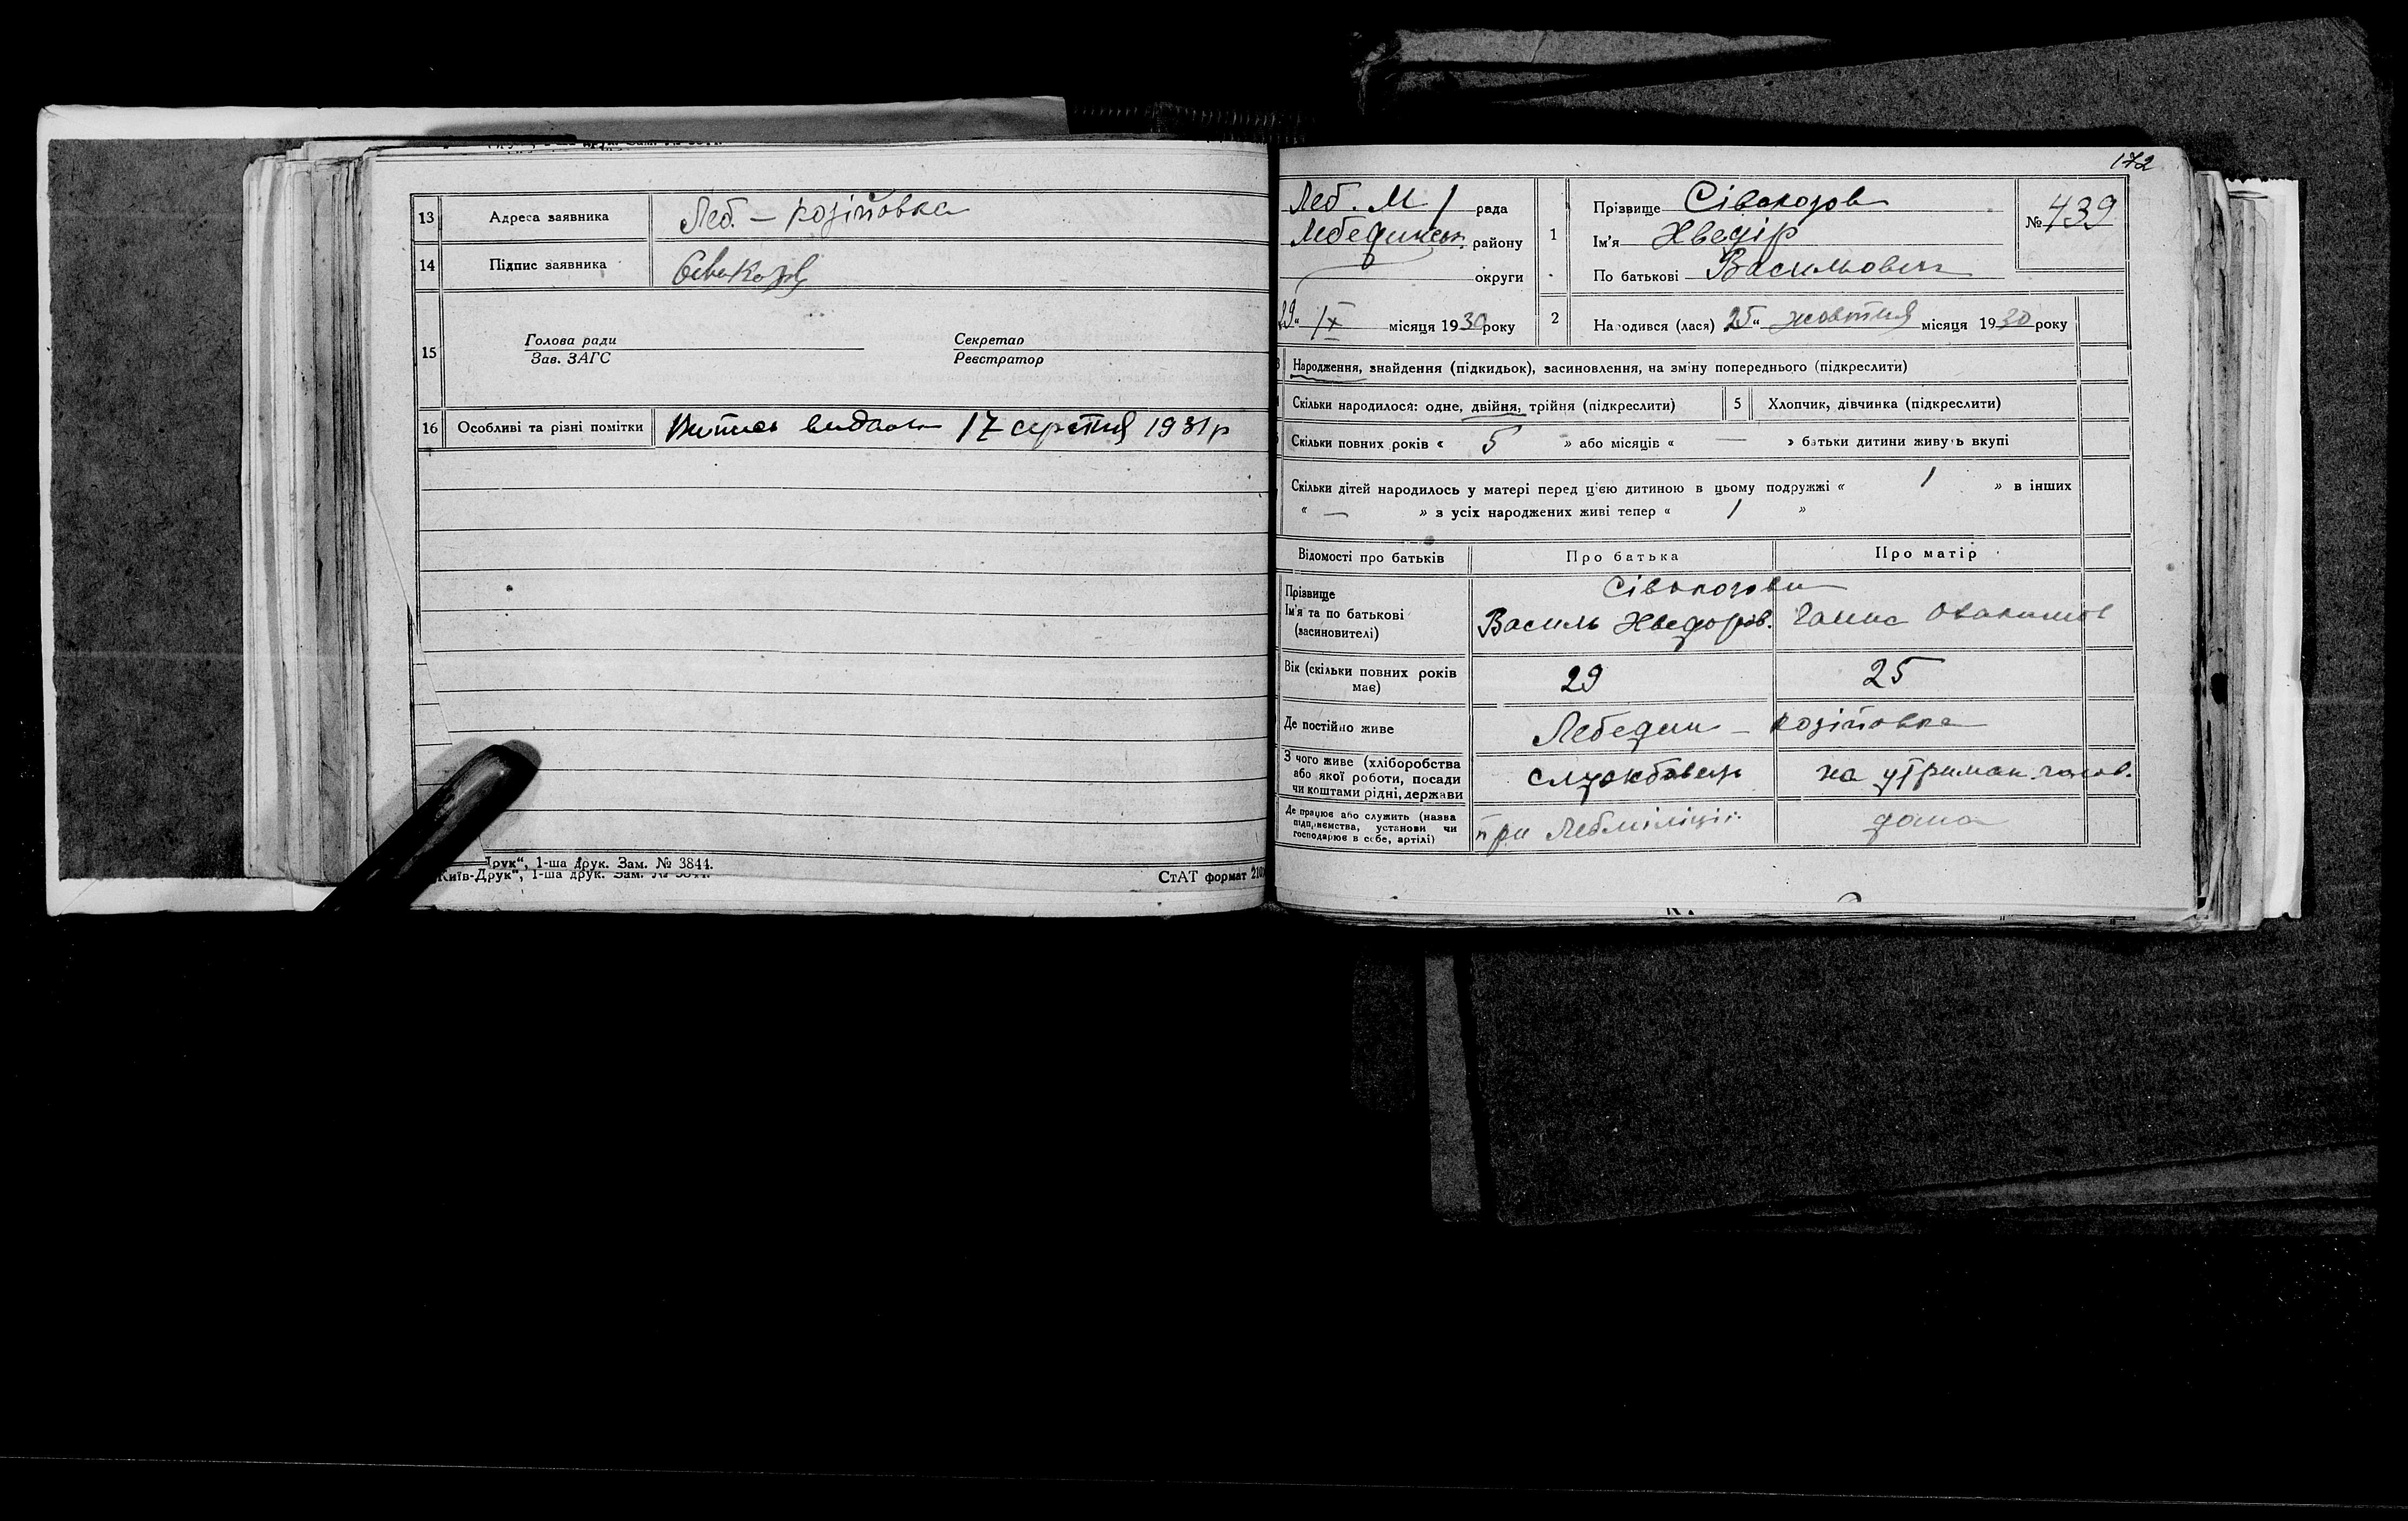 13 Адреса заявника Леб. – козіївка
14 Підпис заявника Сівакозов
15 Голова ради Секретар
Зав. ЗАГС Реєстратор
16 Особливі та різні помітки Витись видано 17 серпня 1931 р
Друк“, 1-ша друк. Зам. № 3844.
Київ-Друк“, 1-ша друк. Зам. № 3844.
СтАТ формат 210
172
Леб. М 1 рада
Лебединськ. району
округи
29 „ IX місяця 1930 року
1 Прізвище Сівокозов
Ім'я Хведір
По батькові Васильович
№ 439
2 Народився (лася) 25 „ жовтня місяця 1930 року
3 Народження, знайдення (підкидьок), засиновлення, на зміну попереднього (підкреслити)
Скільки народилося: одне, двійня, трійня (підкреслити) 5 Хлопчик, дівчинка (підкреслити)
Скільки повних років « 5 » або місяців « — » батьки дитини живуть вкупі
Скільки дітей народилось у матері перед цією дитиною в цьому подружжі « 1 » в інших
« — » з усіх народжених живі тепер « 1 »
Відомості про батьків Про батька Про матір
Прізвище Сівокозови
Ім'я та по батькові Василь Хведоров. Ганна
(засиновителі)
Вік (скільки повних років 29 25
має)
Де постійно живе Лебедин – козіївка
З чого живе (хліборобства
або якої роботи, посади службовець на утриман. чолов.
чи коштами рідні, держави
Де працює або служить (назва
підприємства, установи чи при Лебміліції дома
господарює в себе, артілі)